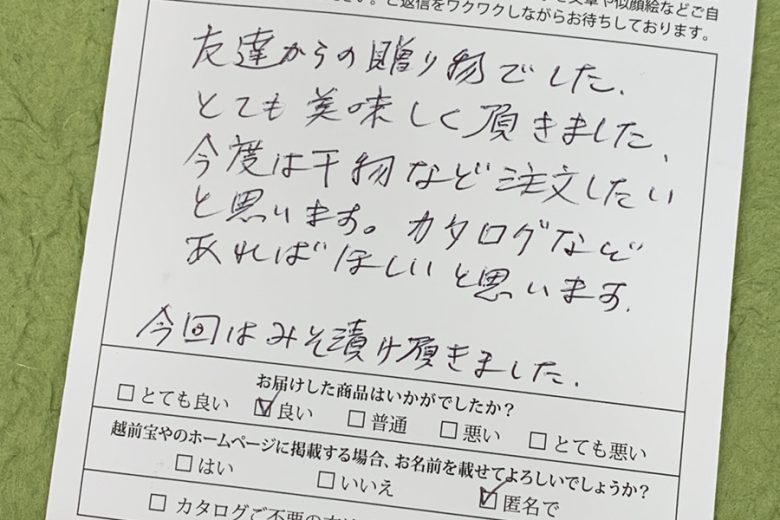 文章や似顔絵などご自
ご返信をワクワクしながらお待ちしております。
友達からの贈り物でした.
とても美味しく頂きました、
今度は干物など注文したい
と思います。カタログなど
あればほしいと思います.
今回はみそ漬け頂きました.
お届けした商品はいかがでしたか？
□とても良い ☑良い □普通 □悪い □とても悪い
越前宝やのホームページに掲載する場合、お名前を載せてよろしいでしょうか？
□はい □いいえ ☑匿名で
□カタログご不要の方は